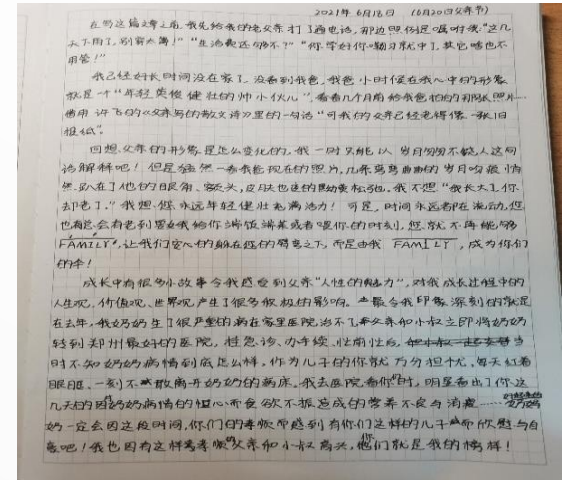 2021年6月18日 (6月20日父亲节)
在写这篇文章之前,我先给我的老父亲打了通电话,那边照例是嘱咐我:“这几
天下雨了,别穿太薄!”“生活费还够不?”“你学好你嘞习就中了,其它啥也不
用管!”
我已经好长时间没在家了,没看到我爸,我爸小时候在我心中的形象
就是个“年轻英俊健壮的帅小伙儿”,看着几个月前给我爸拍的那张照片
借用许飞的《父亲写的散文诗》里的一句话“可我的父亲已经老得像一张旧
报纸”。
回想父亲的形象是怎么变化的,我一时只能以岁月匆匆不饶人这句
话解释吧!但是猛然一看我爸现在的照片,几条弯弯曲曲的岁月吻痕悄
然趴在了他的眼角、额头,皮肤也连的黝黄松弛,我不想“我长大了,你
却老了。”我想您永远年轻健壮充满活力!可是,时间永远都在流动,您
也有总会有老到需要我给你端饭端菜或者喂你的时刻,您就不再能够
FAMILY,让我们安心的躺在您的臂弯之下,而是由我 FAMILY,成为你们
的伞!
成长中有很多小故事令我感受到父亲“人性的魅力”,对我成长过程中的
人生观、价值观、世界观产生了很多积极的影响。最令我印象深刻的就是
在去年,我奶奶生了很严重的病在家里医院治不了,父亲和小叔立即将奶奶
转到郑州最好的医院,挂急诊、办手续、忙前忙后,当
时不知奶奶病情到底怎么样,作为儿子的你就万分担忧,每天红着
眼眶、一刻不敢离开奶奶的病床。我去医院看你时,明显看出了你这
几天的因奶奶病情的担心而食欲不振造成的营养不良与消瘦……奶奶
奶一定会因这段时间,你们的孝顺而感到有你们这样的儿子而欣慰与自
豪吧!我也因有这样孝顺的父亲和小叔高兴,他们就是我的榜样!